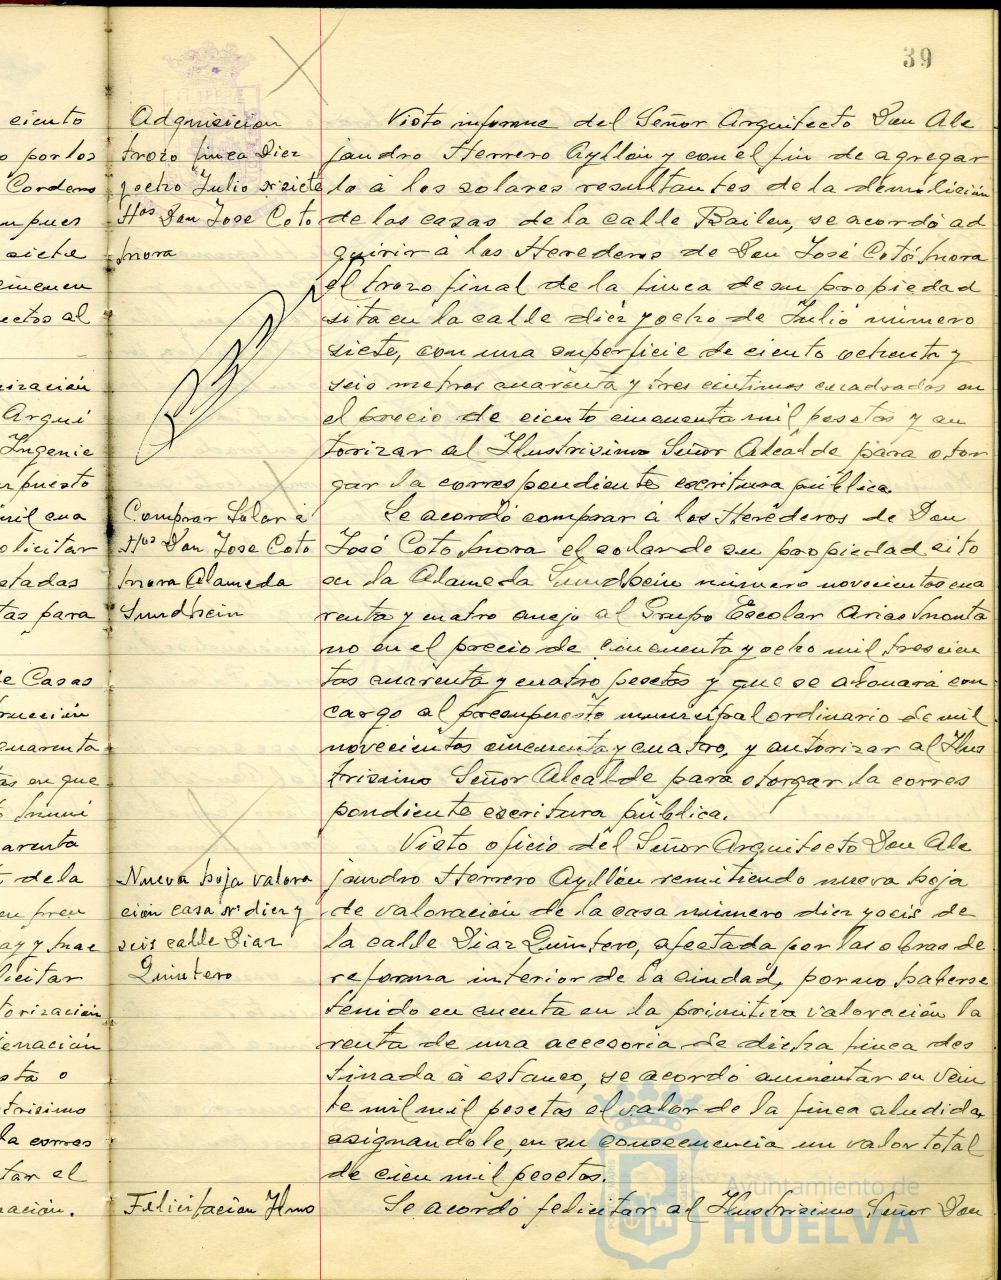 39
eiento
o por los
Cordero
siete
ectos al
nización
Arqui
Ingenie
mil cua
olicitar
stadas
tas para
de Casas
rucción
cuarenta
tas en que
arenta
de la
licitar
torización
enación
sta o
trisimo
la corres
tar el
nación.
Adquisicion
trozo finca Diez
y ocho Julio nº siete
Hºs Don Jose Coto
Mora
Visto informe del Señor Arquitecto Don Ale
jandro Herrero Ayllón y con el fin de agregar
lo á los solares resultantes de la demolición
de las casas de la calle Bailen, se acordó ad
quirir á los Herederos de Don José Cotó Mora
el trozo final de la finca de su propiedad
sita en la calle diez y ocho de Julio número
siete, con una superficie de ciento ochenta y
seis metros cuarenta y tres centimos cuadrados en
el precio de ciento cincuenta mil pesetas y au
torizar al Ilustrisimo Señor Alcalde para otor
gar la correspondiente escritura pública.
Comprar Solar á
Hºs Don Jose Coto
Mora Alameda
Sundhein
Se acordó comprar á los Herederos de Don
José Coto Mora el solar de su propiedad sito
en la Alameda Sundhein número novecientos cua
renta y cuatro anejo al Grupo Escolar Arias Monta
no en el precio de cincuenta y ocho mil trescien
tas cuarenta y cuatro pesetas y que se abonará con
cargo al presupuesto municipal ordinario de mil
novecientos cincuenta y cuatro, y autorizar al Ilus
trisimo Señor Alcalde para otorgar la corres
pondiente escritura pública.
Nueva hoja valora
ción casa nº diez y
seis calle Diaz
Quintero
Visto oficio del Señor Arquitecto Don Ale
jandro Herrero Ayllón remitiendo nueva hoja
de valoración de la casa número diez y seis de
la calle Diaz Quintero, afectada por las obras de
reforma interior de la ciudad, por no haberse
tenido en cuenta en la primitiva valoración la
renta de una accesoria de dicha finca des
tinada á estanco, se acordó aumentar en vein
te mil mil pesetas el valor de la finca aludida
asignandole, en su consecuencia un valor total
de cien mil pesetas.
Felicitación Ilmo
Se acordó felicitar al Ilustrisimo Señor Don
Ayuntamiento de
HUELVA